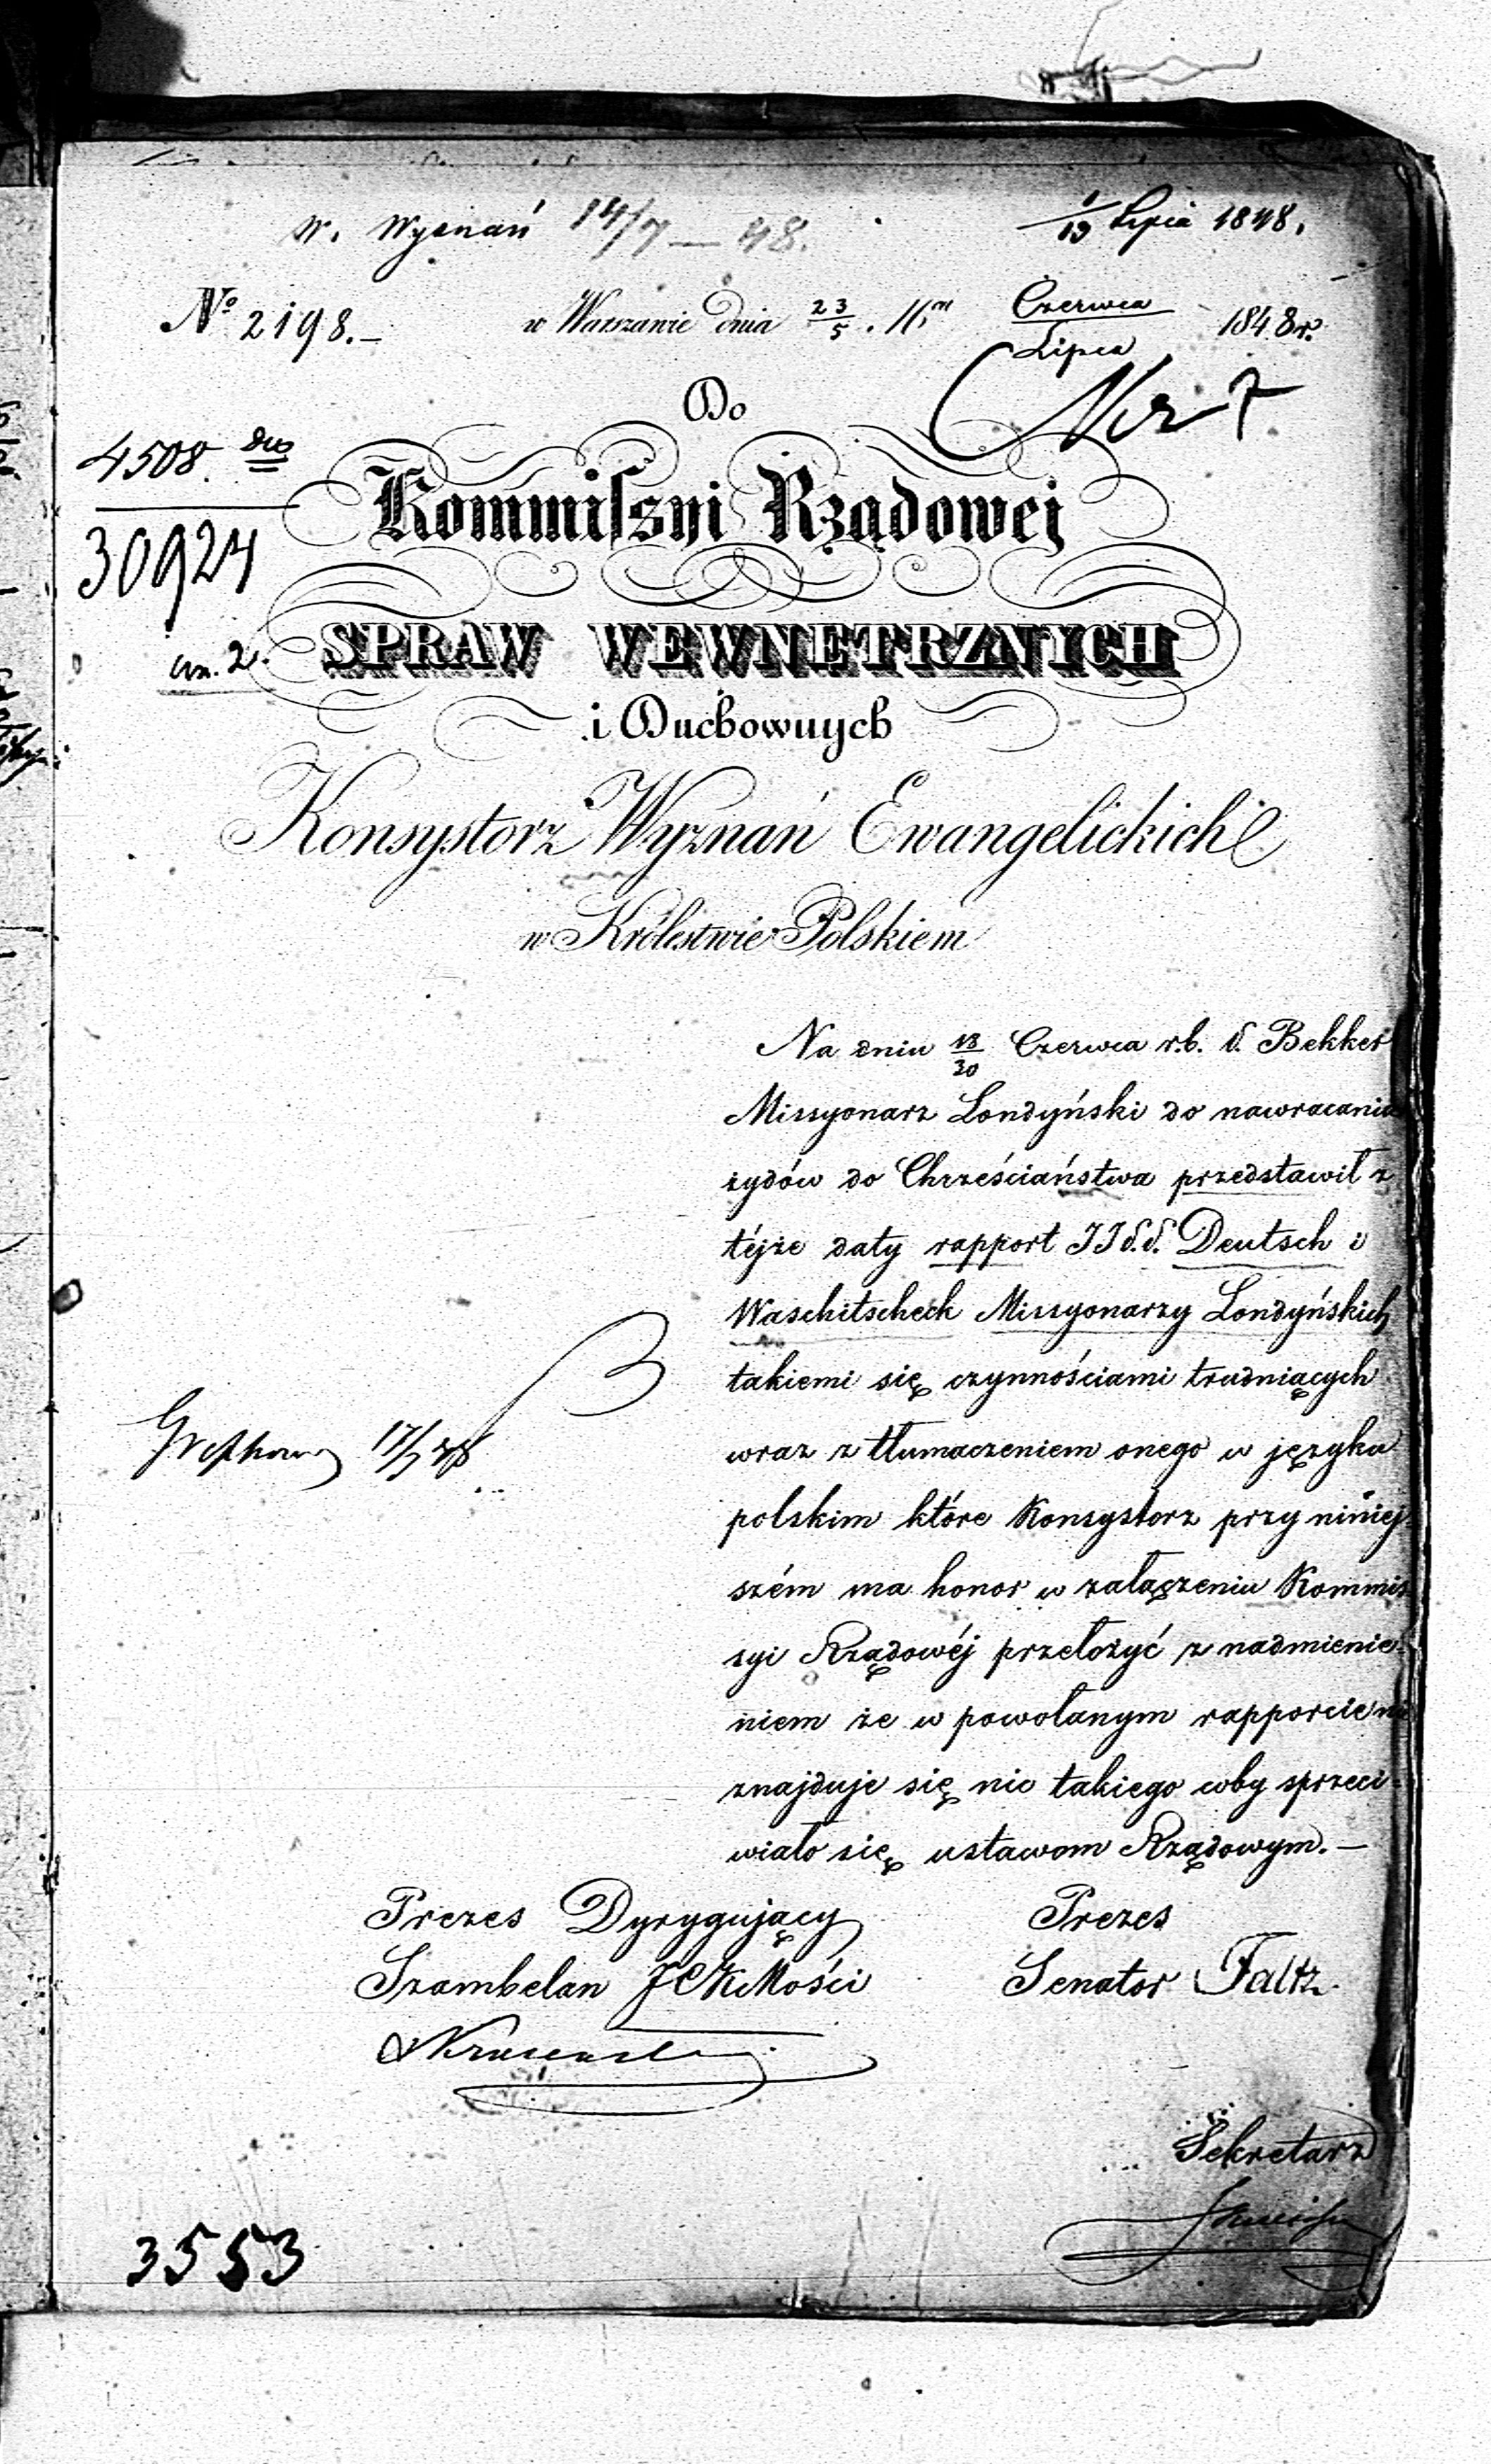 W. Wyznań 14/7 — 48.
1/13 Lipca 1848.
No 2198.—
w Warszawie dnia 23/5 . Czerwca/Lipca 1848 r.
Do
4508.
Kommissyi Rządowej
30924
SPRAW WEWNETRZNYCH
i Duchownych
Konsystorz Wyznań Ewangelickich
w Królestwie Polskiem
Na dniu 18/30 Czerwca r.b. d. Bekker
Missyonarz Londyński do nawracania
żydów do Chrześciaństwa przedstawił z
téjże daty rapport JJ d.d. Deutsch i
Waschitscheck Missyonarzy Londyńskich
takiemi się czynnościami trudniących
17/7 48
wraz z tłumaczeniem onego w języku
polskim które Konsystorz przy niniej
szém ma honor w załączeniu Kommis
syi Rządowéj przełożyć z nadmienie-
niem że w powołanym rapporcie nie
znajduje się nic takiego coby sprzeci-
wiało się ustawom Rządowym.—
Prezes Dyrygujący
Prezes
Szambelan JCKMości
Senator Faltz.
Sekretarz
3553